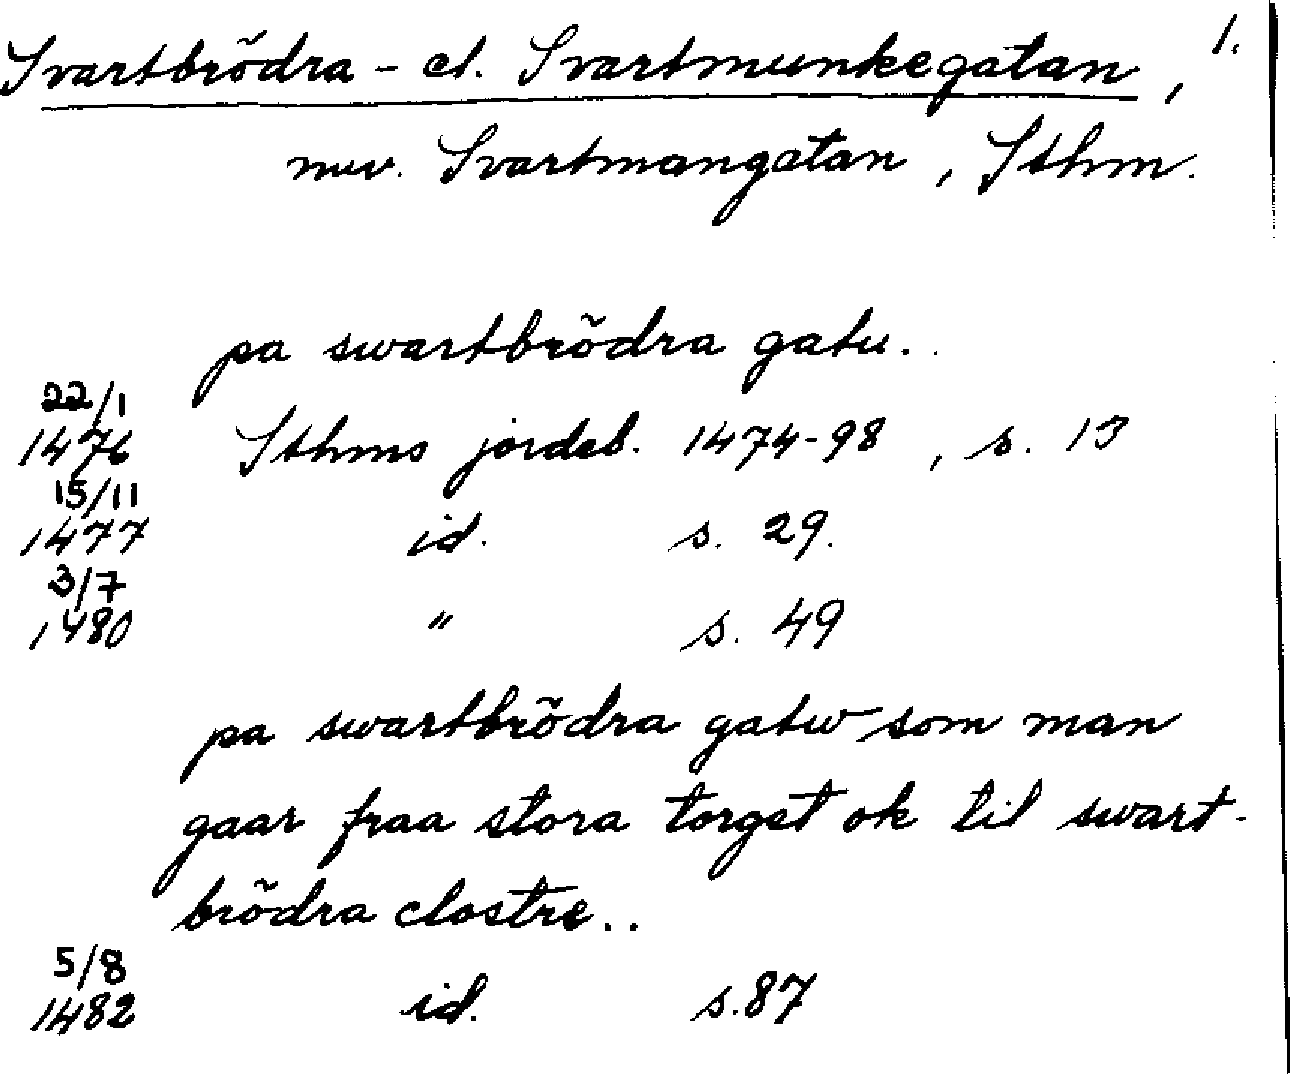 Svartbrödra - el. Svartmunkegatan, 1.
nuv. Svartmangatan, Sthm.
pa swartbrödra gatu..
22/1
1476 Sthms jordeb. 1474-98, s. 13
15/11
1477 id. s. 29.
3/7
1480 " s. 49
pa swartbrödra gatw som man
gaar fraa stora torget ok til swart-
brödra clostre..
5/8
1482 id. s. 87